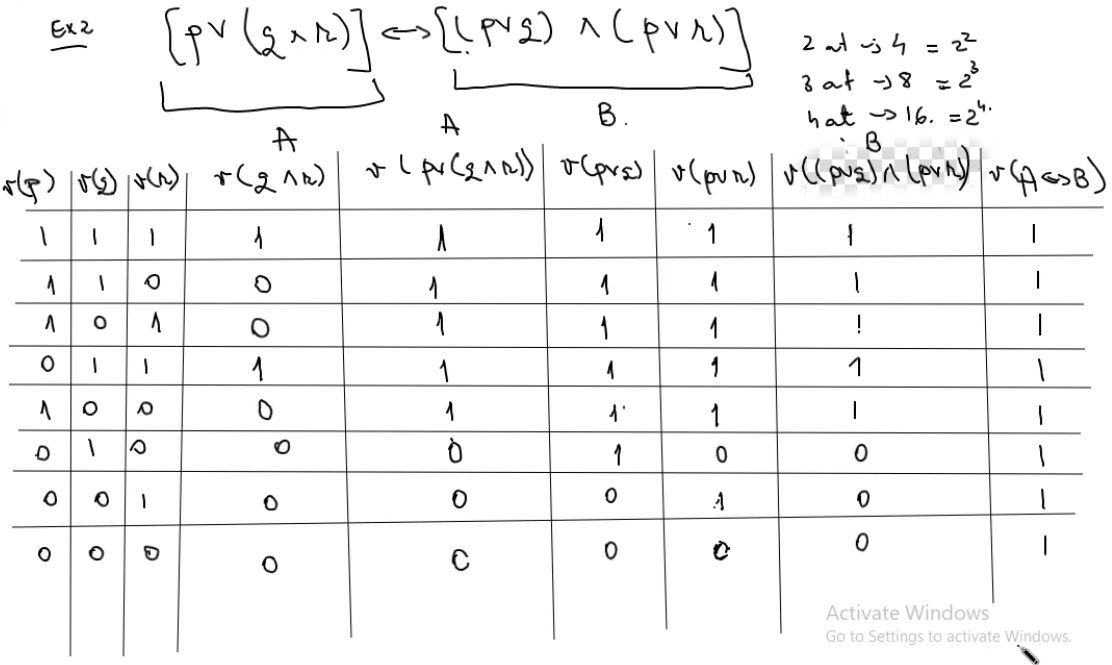 Ex2 [p∨(q∧r)] ↔ [(p∨q) ∧ (p∨r)]
2 at → 4 = 2²
3 at → 8 = 2³
4 at → 16. = 2⁴.
A B.
A B
v(p) v(q) v(r) v(q∧r) v(p∨(q∧r)) v(p∨q) v(p∨r) v((p∨q)∧(p∨r)) v(A⇔B)
1 1 1 1 1 1 1 1 1
1 1 0 0 1 1 1 1 1
1 0 1 0 1 1 1 1 1
0 1 1 1 1 1 1 1 1
1 0 0 0 1 1 1 1 1
0 1 0 0 0 1 0 0 1
0 0 1 0 0 0 1 0 1
0 0 0 0 0 0 0 0 1
Activate Windows
Go to Settings to activate Windows.